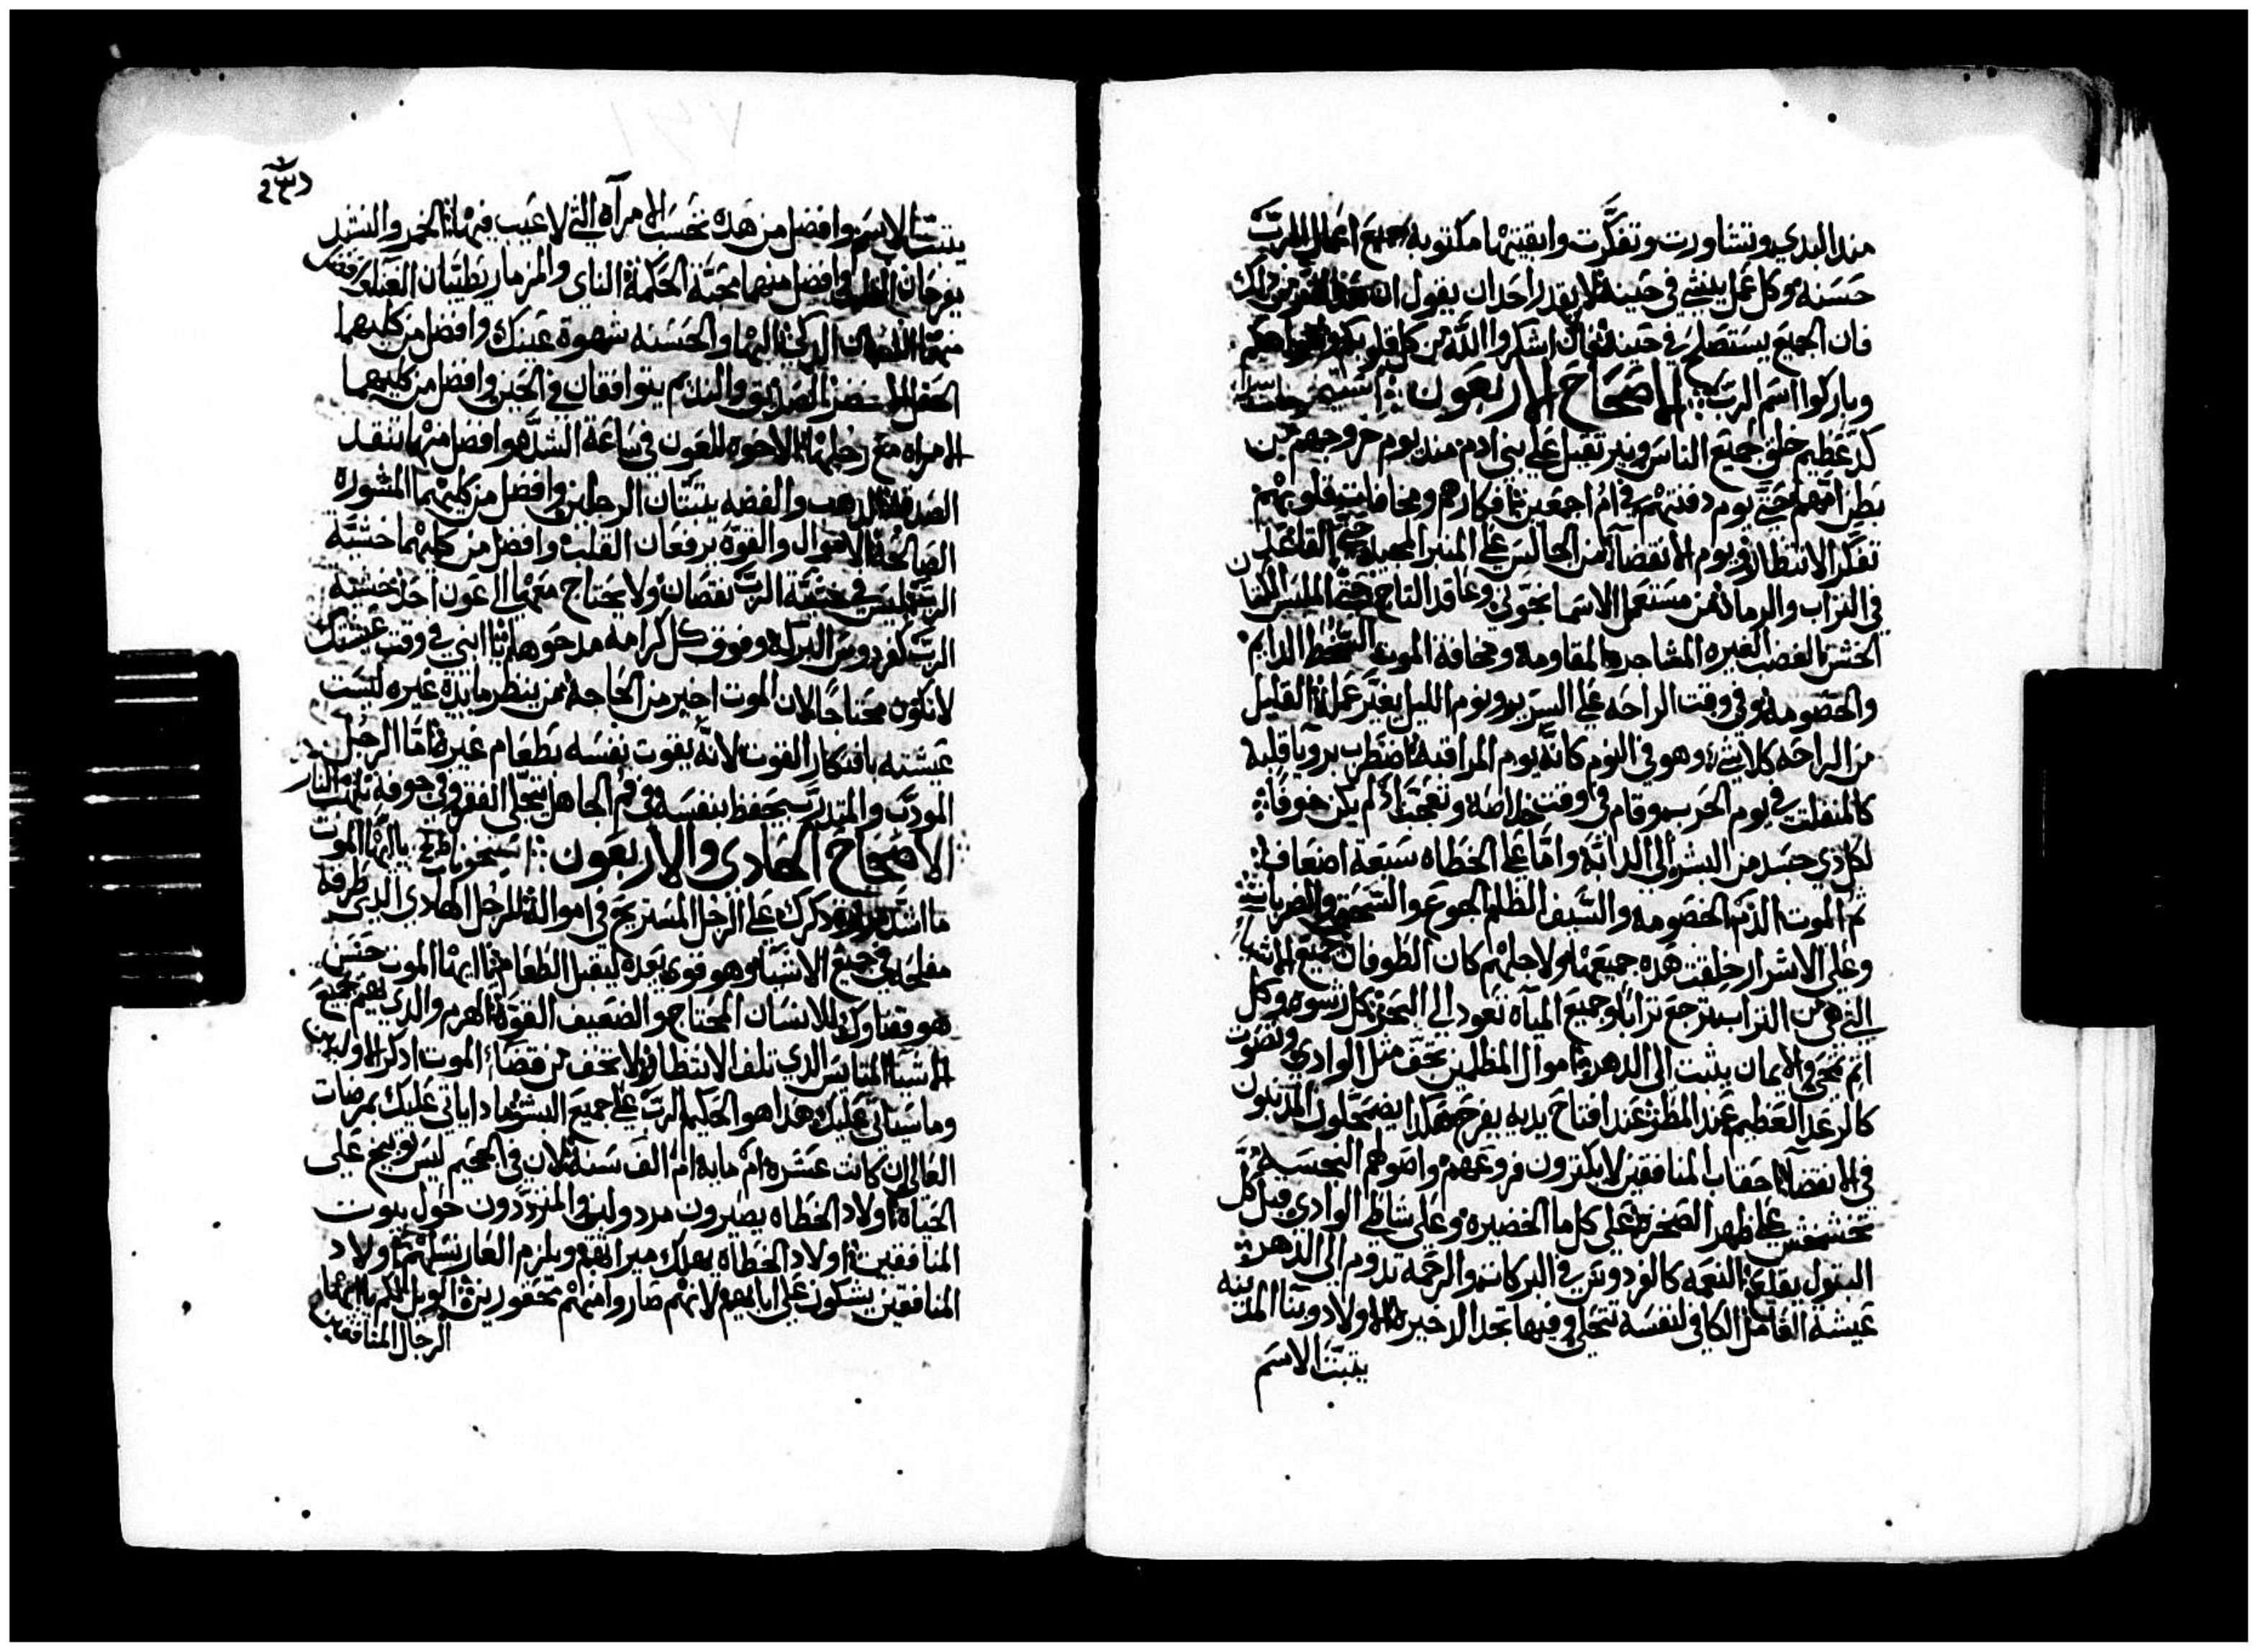 مند البدي وتشاورت وتفكرت وابقيتها مكتوبه جميع اعمال الرب
حسنه وكل عمل ينشي في حينه فلا يقدر احد ان يقول ان هذا اشر من ذلك
فان الجميع يستصلح في حينه اشكروا الله من كل قلوبكم وافواهكم
وباركوا اسم الرب الاصحاح الاربعون
كد عظيم خلق لجميع الناس ونير تقيل على بني ادم مند يوم خروجهم من
بطن امهم حتى يوم دفنتهم في ام اجمعين افكارهم ومخافات قلوبهم
تفكر الانتظار ويوم الانقضا من الجالس على المنبر المجيد حتى القاعد
في التراب والرماد من مستعمل الاسمانجوني وعاقد التاج حتى الملبس الكتان
الخشن الغضب الغيره المشاجره المقاومه ومخافة الموت السخط الدايم
والخصومه وفي وقت الراحه على السرير ونوم الليل يغير عمله القليل
من الراحه كلاشي وهو في النوم كانه يوم المراقبه اضطرب برويا قلبه
كالمنفلت في يوم الحرب وقام في وقت خلاصه وتعجب اذ لم يكن خوفا
لكل دي جسد من البشر الى الدابه واما على الخطاه سبعة اضعاف
ثم الموت الدم الخصومه والسيف الظلم الجوع والسحق والضربات
وعلى الاشرار خلقت هذه جميعها ولاجلهم كان الطوفان جميع الاشيا
التي هي من التراب ترجع ترابا وجميع المياه تعود الى البحر كل رشوه وكل
اثم يمحى والايمان يثبت الى الدهر اموال المظلمين تجف مثل الوادي وتصوت
كالرعد العظيم عند المطر عند افتاح يديه يفرح هكدا يضمحلون المدنبون
في الانقضا احقاب المنافقين لا يكترون فروعهم واصولهم النجسه
تخشخش على ظهر الصخره على كل ما الخضيره وعلى شاطي الوادي قبل كل
البتول يقلع النعمه كالفردوس في البركات والرحمه تدوم الى الدهر
عيشة الفاعل الكافي لنفسه تتحلى وفيها تجد الدخيره الاولاد وبنا المدينه
يثبت الاسم
يثبت الاسم وافضل من هده تحسب الامراه التي لا عيب فيها الخمر والنشيد
يفرحان القلب وافضل منهما محبة الحكمة الناي والمزمار يطيبان
منهما اللسان الدكي البها والحسنه شهوة عينك وافضل من كليهما
الحقل الصديق والنديم يتوافقان في الحين وافضل من كليهما
الامراه مع رجلها الاخوه للعون في ساعة الشده وافضل منها تنقد
الصدقه الدهب والفضه يثبتان الرجلين وافضل من كليهما المشوره
الصالحه الاموال والقوة يرفعان القلب وافضل من كليهما خشية
الرب ليس في خشية الرب نقصان ولا يحتاج معها الى عون احد خشية
الرب كفردوس البركه وفوق كل كرامه مدحوها يا ابني في وقت عيشتك
لا تكون محتاجا لان الموت اخير من الحاجه من ينظر مايدة غيره ليست
عيشته بافتكار القوت لانه يقوت نفسه بطعام غيره اما الرجل
المودب والمتدرب يحفظ نفسه في فم الجاهل يتحلى الفقر وفي جوفه تلتهب النار
الاصحاح الحادي والاربعون يا ايها الموت
ما اشد مرارة دكرك على الرجل المستريح في امواله للرجل الهادي الدي طرقه
مفلحه في جميع الاشيا وهو قوي بعده ليقبل الطعام يا ايها الموت حسن
هو قضاوك للانسان المحتاج والضعيف القوة الهرم والدي يهتم بجميع
الاشيا المتايس الدي تلف الانتظار لا تخف من قضا الموت ادكر الاولين
وما سياتي عليك هدا هو الحكم الرب على جميع البشر مادا ياتي عليك بمرضات
العالي ان كانت عشره ام مايه ام الف سنه لان في الجحيم ليس توبيخ على
الحياة اولاد الخطاه يصيرون مردولين والمترددون حول بيوت
المنافقين اولاد الخطاه يهلك ميراثهم ويلزم العار نسلهم اولاد
المنافقين يشكون على ابايهم لانهم صاروا منهم محقورين الويل لكم يا ايها
الرجال المنافقين